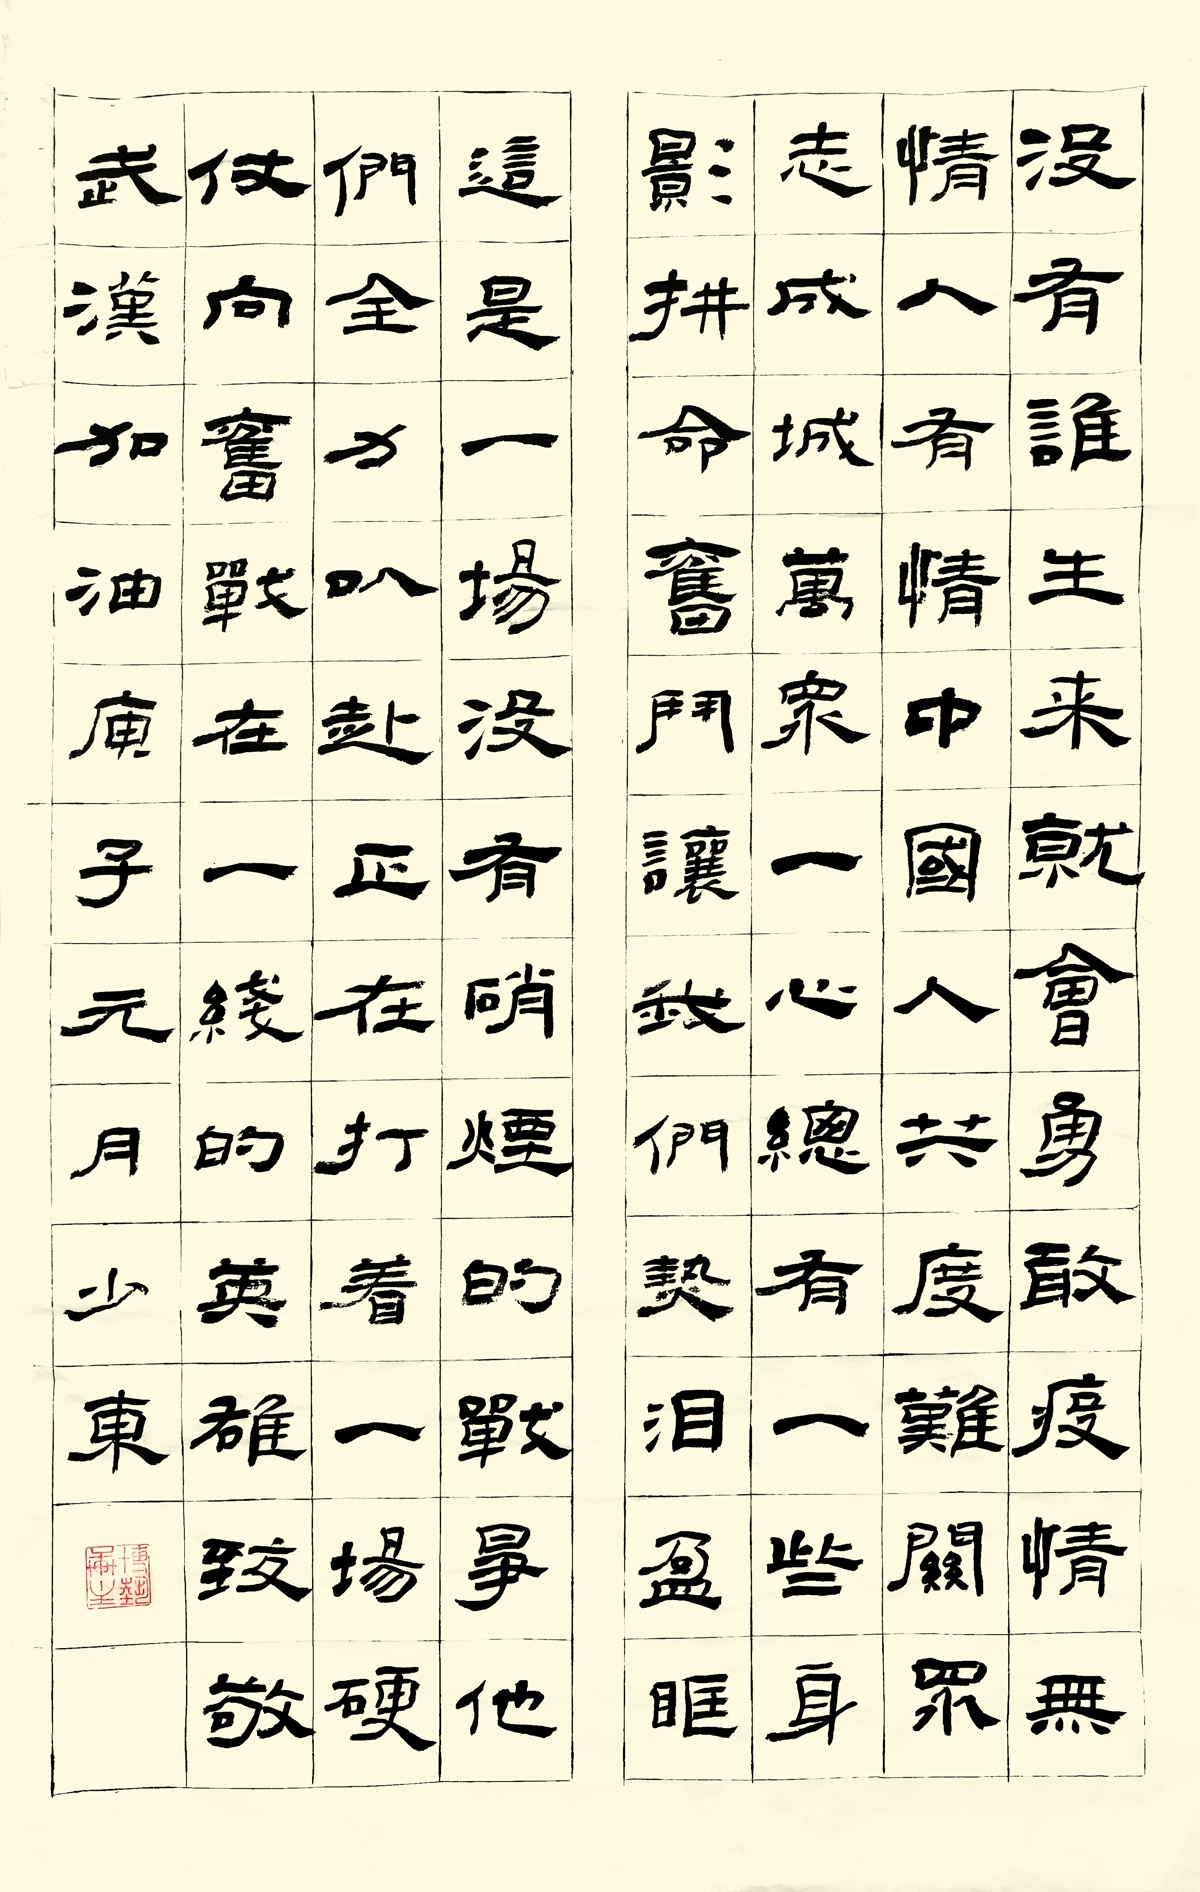 没有誰生来就會勇敢疫情無
情人有情中國人共度難關眾
志成城萬眾一心總有一些身
影拼命奮鬥讓我們熱泪盈眶
這是一場没有硝煙的戰爭他
們全力以赴正在打着一場硬
仗向奮戰在一綫的英雄致敬
武漢加油庚子元月少東